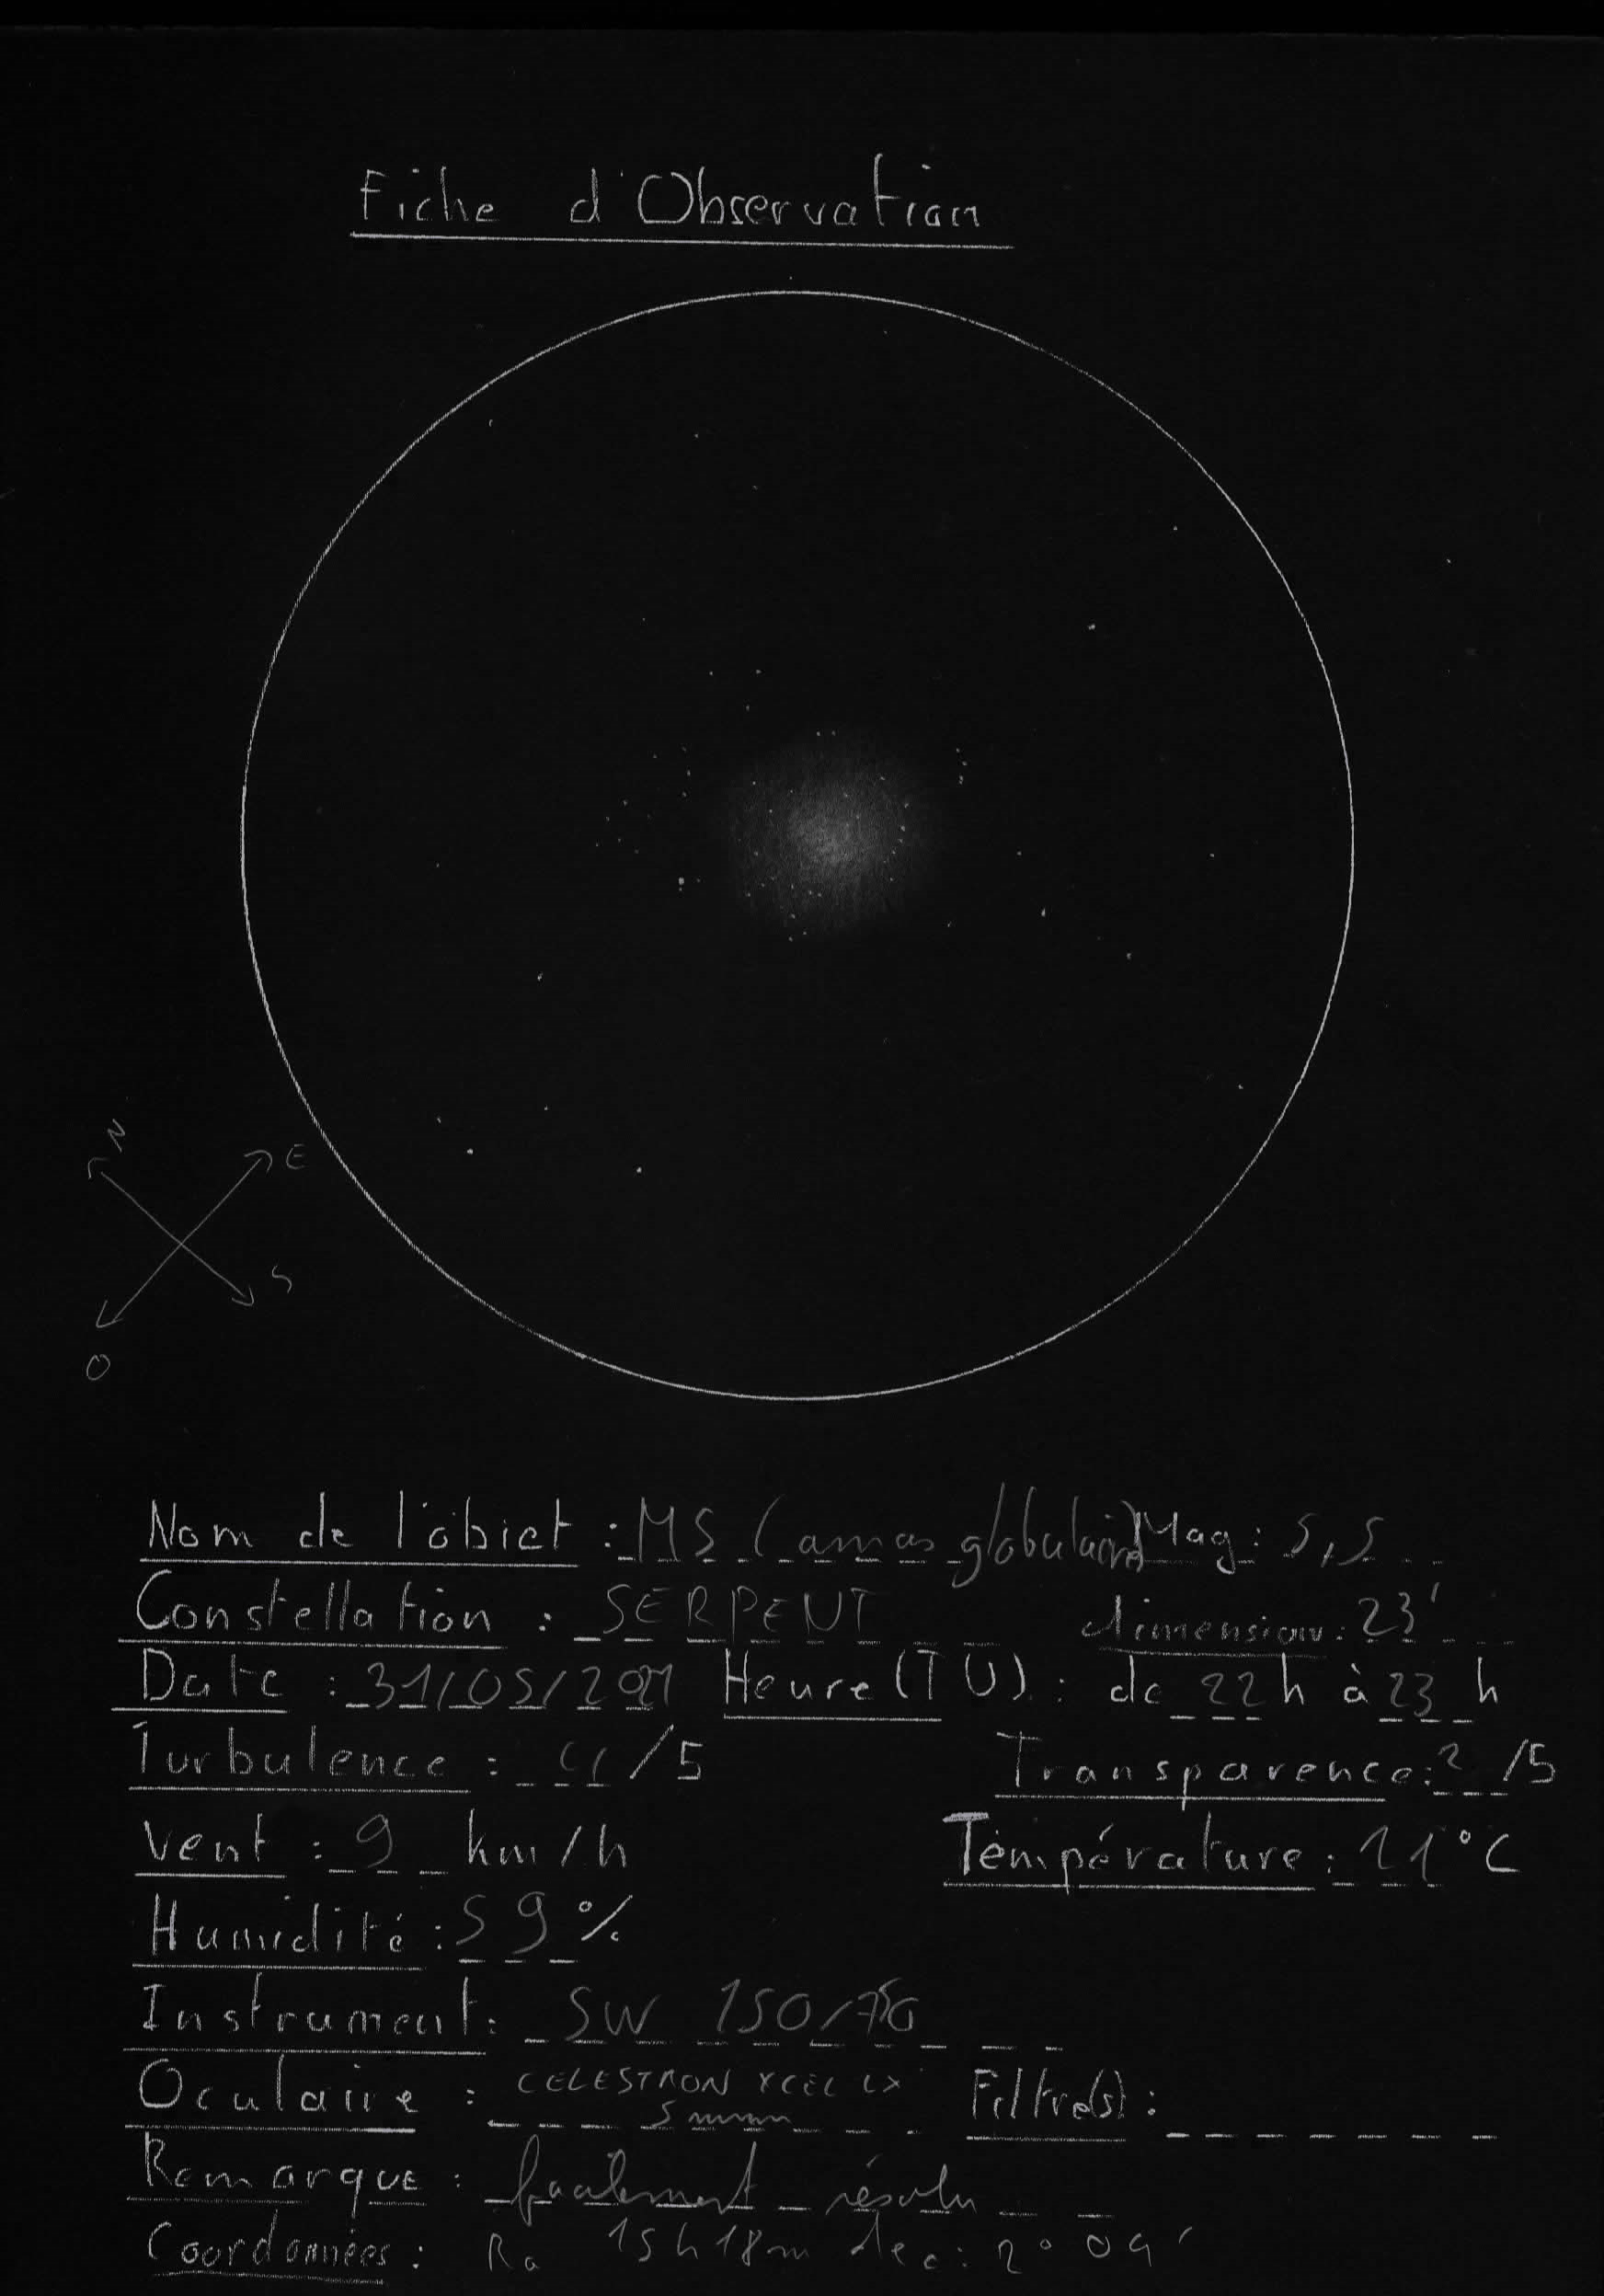 Fiche d'Observation
N
E
S
O
Nom de l'objet : M5 (amas globulaire) Mag : 5,5
Constellation : SERPENT dimension : 23'
Date : 31/05/2021 Heure (TU) : de 22 h à 23 h
Turbulence : 4 /5 Transparence : 2 /5
Vent : 9 km/h Température : 11 °C
Humidité : 59 %
Instrument : SW 150/750
Oculaire : CELESTRON XCEL LX Filtre(s) :
5 mm
Remarque : facilement résolu
Coordonnées : Ra 15h 18m dec : 2° 04'